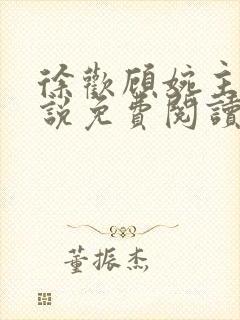 徐歡顧婉主
說免費閱讀
董振杰